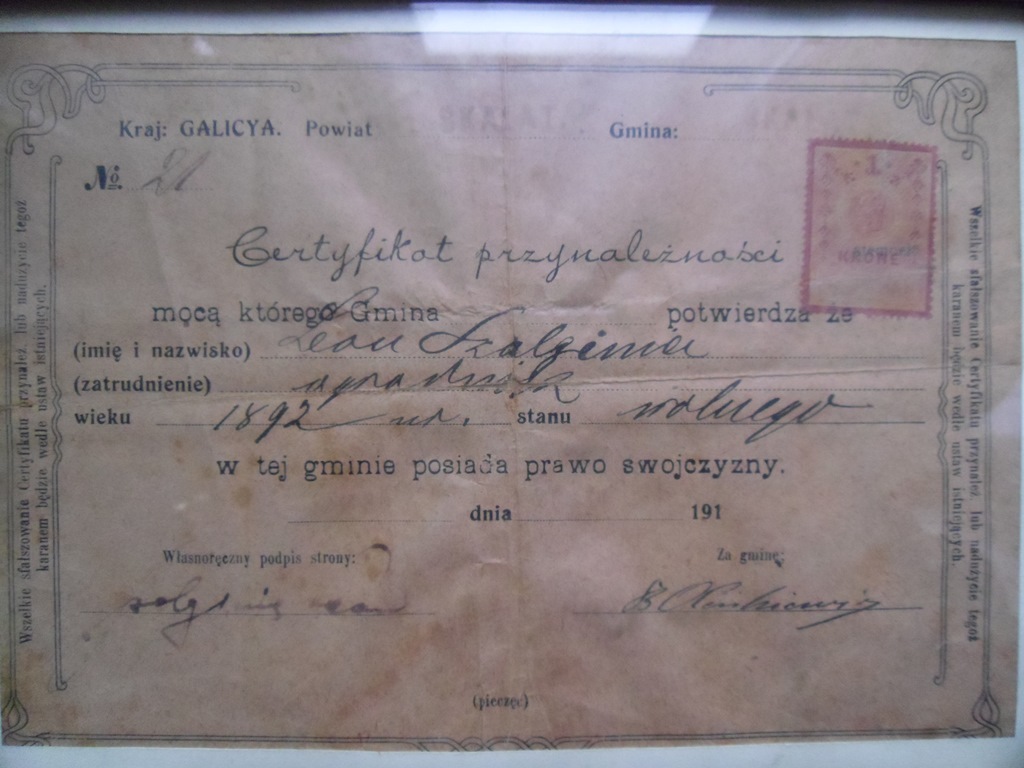 Kraj: GALICYA. Powiat Gmina:
№ 21
1
KROWE
Certyfikat przynależności
mocą którego Gmina potwierdza że
(imię i nazwisko) Leon
(zatrudnienie)
wieku 1892 ur. stanu wolnego
w tej gminie posiada prawo swojczyzny.
dnia 191
Własnoręczny podpis strony:
Za gminę:
(pieczęc)
Wszelkie sfałszowanie Certyfikatu przynależ. lub nadużycie tegoż
karanem będzie wedle ustaw istniejących.
Wszelkie sfałszowanie Certyfikatu przynależ. lub nadużycie tegoż
karanem będzie wedle ustaw istniejących.